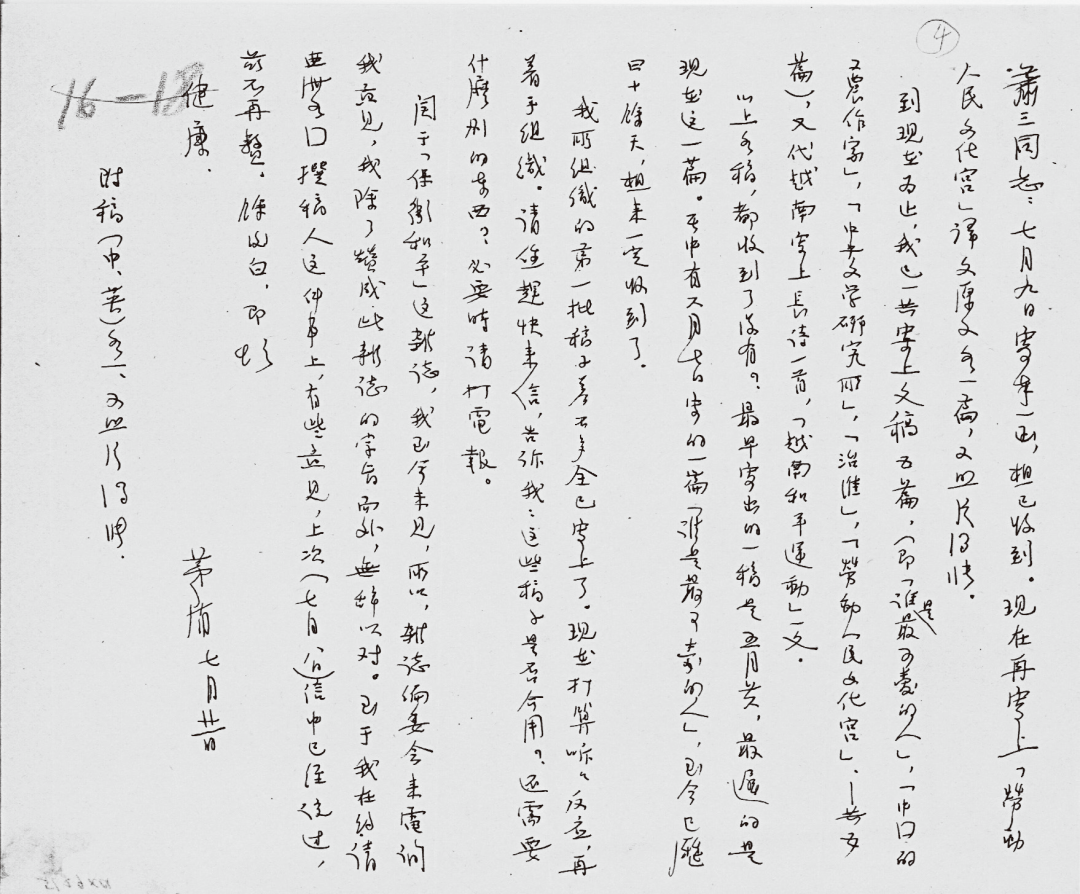 4
蕭三同志：七月九日寄来一函，想已收到。现在再寄上「勞動
人民文化宫」譯文原文各一篇，又照片13帧。
到现在为止，我已一共寄上文稿五篇，（即「谁是最可爱的人」，「中囗的
工農作家」，「中央文学研究所」，「治淮」，「勞動人民文化宫」，—共五
篇），又代越南寄上長诗一首，「越南和平運動」一文。
以上各稿，都收到了没有？最早寄出的一稿是五月廿，最遲的是
现在这一篇。其中有六月七日寄的一篇「谁是最可爱的人」，至今已
四十餘天，想来一定收到了。
我所组織的第一批稿子差不多全已寄上了。现在打算听く反应，再
着手组織。请您趕快来信，告诉我：这些稿子是否合用？还需要
什麽别的东西？必要時请打電報。
関于「保衛和平」这雜誌，我至今未見，所以，雜誌编委会来電询
我意見，我除了赞成此雜誌的字句而外，無辞以对。至于我在约请
亚洲各囗撰稿人这件事上，有些意見，上次（七月八日）信中已经说过，
兹不再贅。餘后白，即颂
健康．
茅盾 七月廿日
附稿（中、英）各一、又照片13帧．
16—18